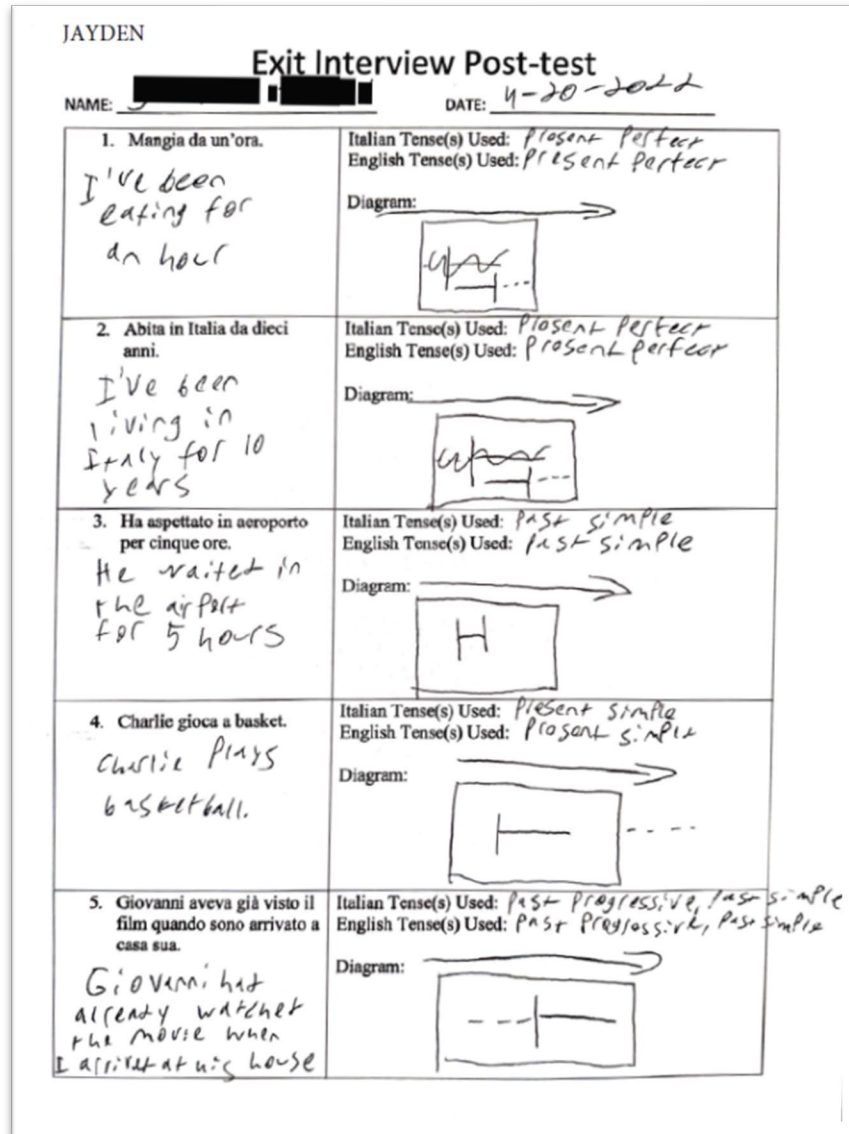 JAYDEN
Exit Interview Post-test
NAME:
DATE: 4-20-2022
1. Mangia da un'ora.
I've been
eating for
an hour
Italian Tense(s) Used: Present Perfect
English Tense(s) Used: Present Perfect
Diagram:
2. Abita in Italia da dieci
anni.
I've been
living in
Italy for 10
years
Italian Tense(s) Used: Present Perfect
English Tense(s) Used: Present perfect
Diagram:
3. Ha aspettato in aeroporto
per cinque ore.
He waited in
the airport
for 5 hours
Italian Tense(s) Used: Past simple
English Tense(s) Used: Past simple
Diagram:
4. Charlie gioca a basket.
Charlie Plays
basketball.
Italian Tense(s) Used: Present simple
English Tense(s) Used: Present simple
Diagram:
5. Giovanni aveva già visto il
film quando sono arrivato a
casa sua.
Giovanni had
already watched
the movie when
I arrived at his house
Italian Tense(s) Used: Past Progressive, Past simple
English Tense(s) Used: Past Progressive, Past simple
Diagram: